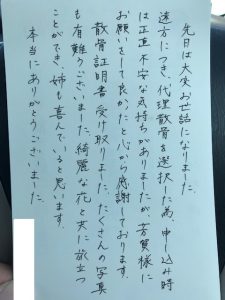 先日は大変お世話になりました。
遠方につき、代理散骨を選択した為、申し込み時
は正直不安な気持ちがありましたが、芳賀様に
お願いをして良かったと心から感謝しております。
散骨証明書受け取りました。たくさんの写真
も有難うございました。綺麗な花と共に旅立つ
ことができ、姉も喜んでいると思います。
本当にありがとうございました。